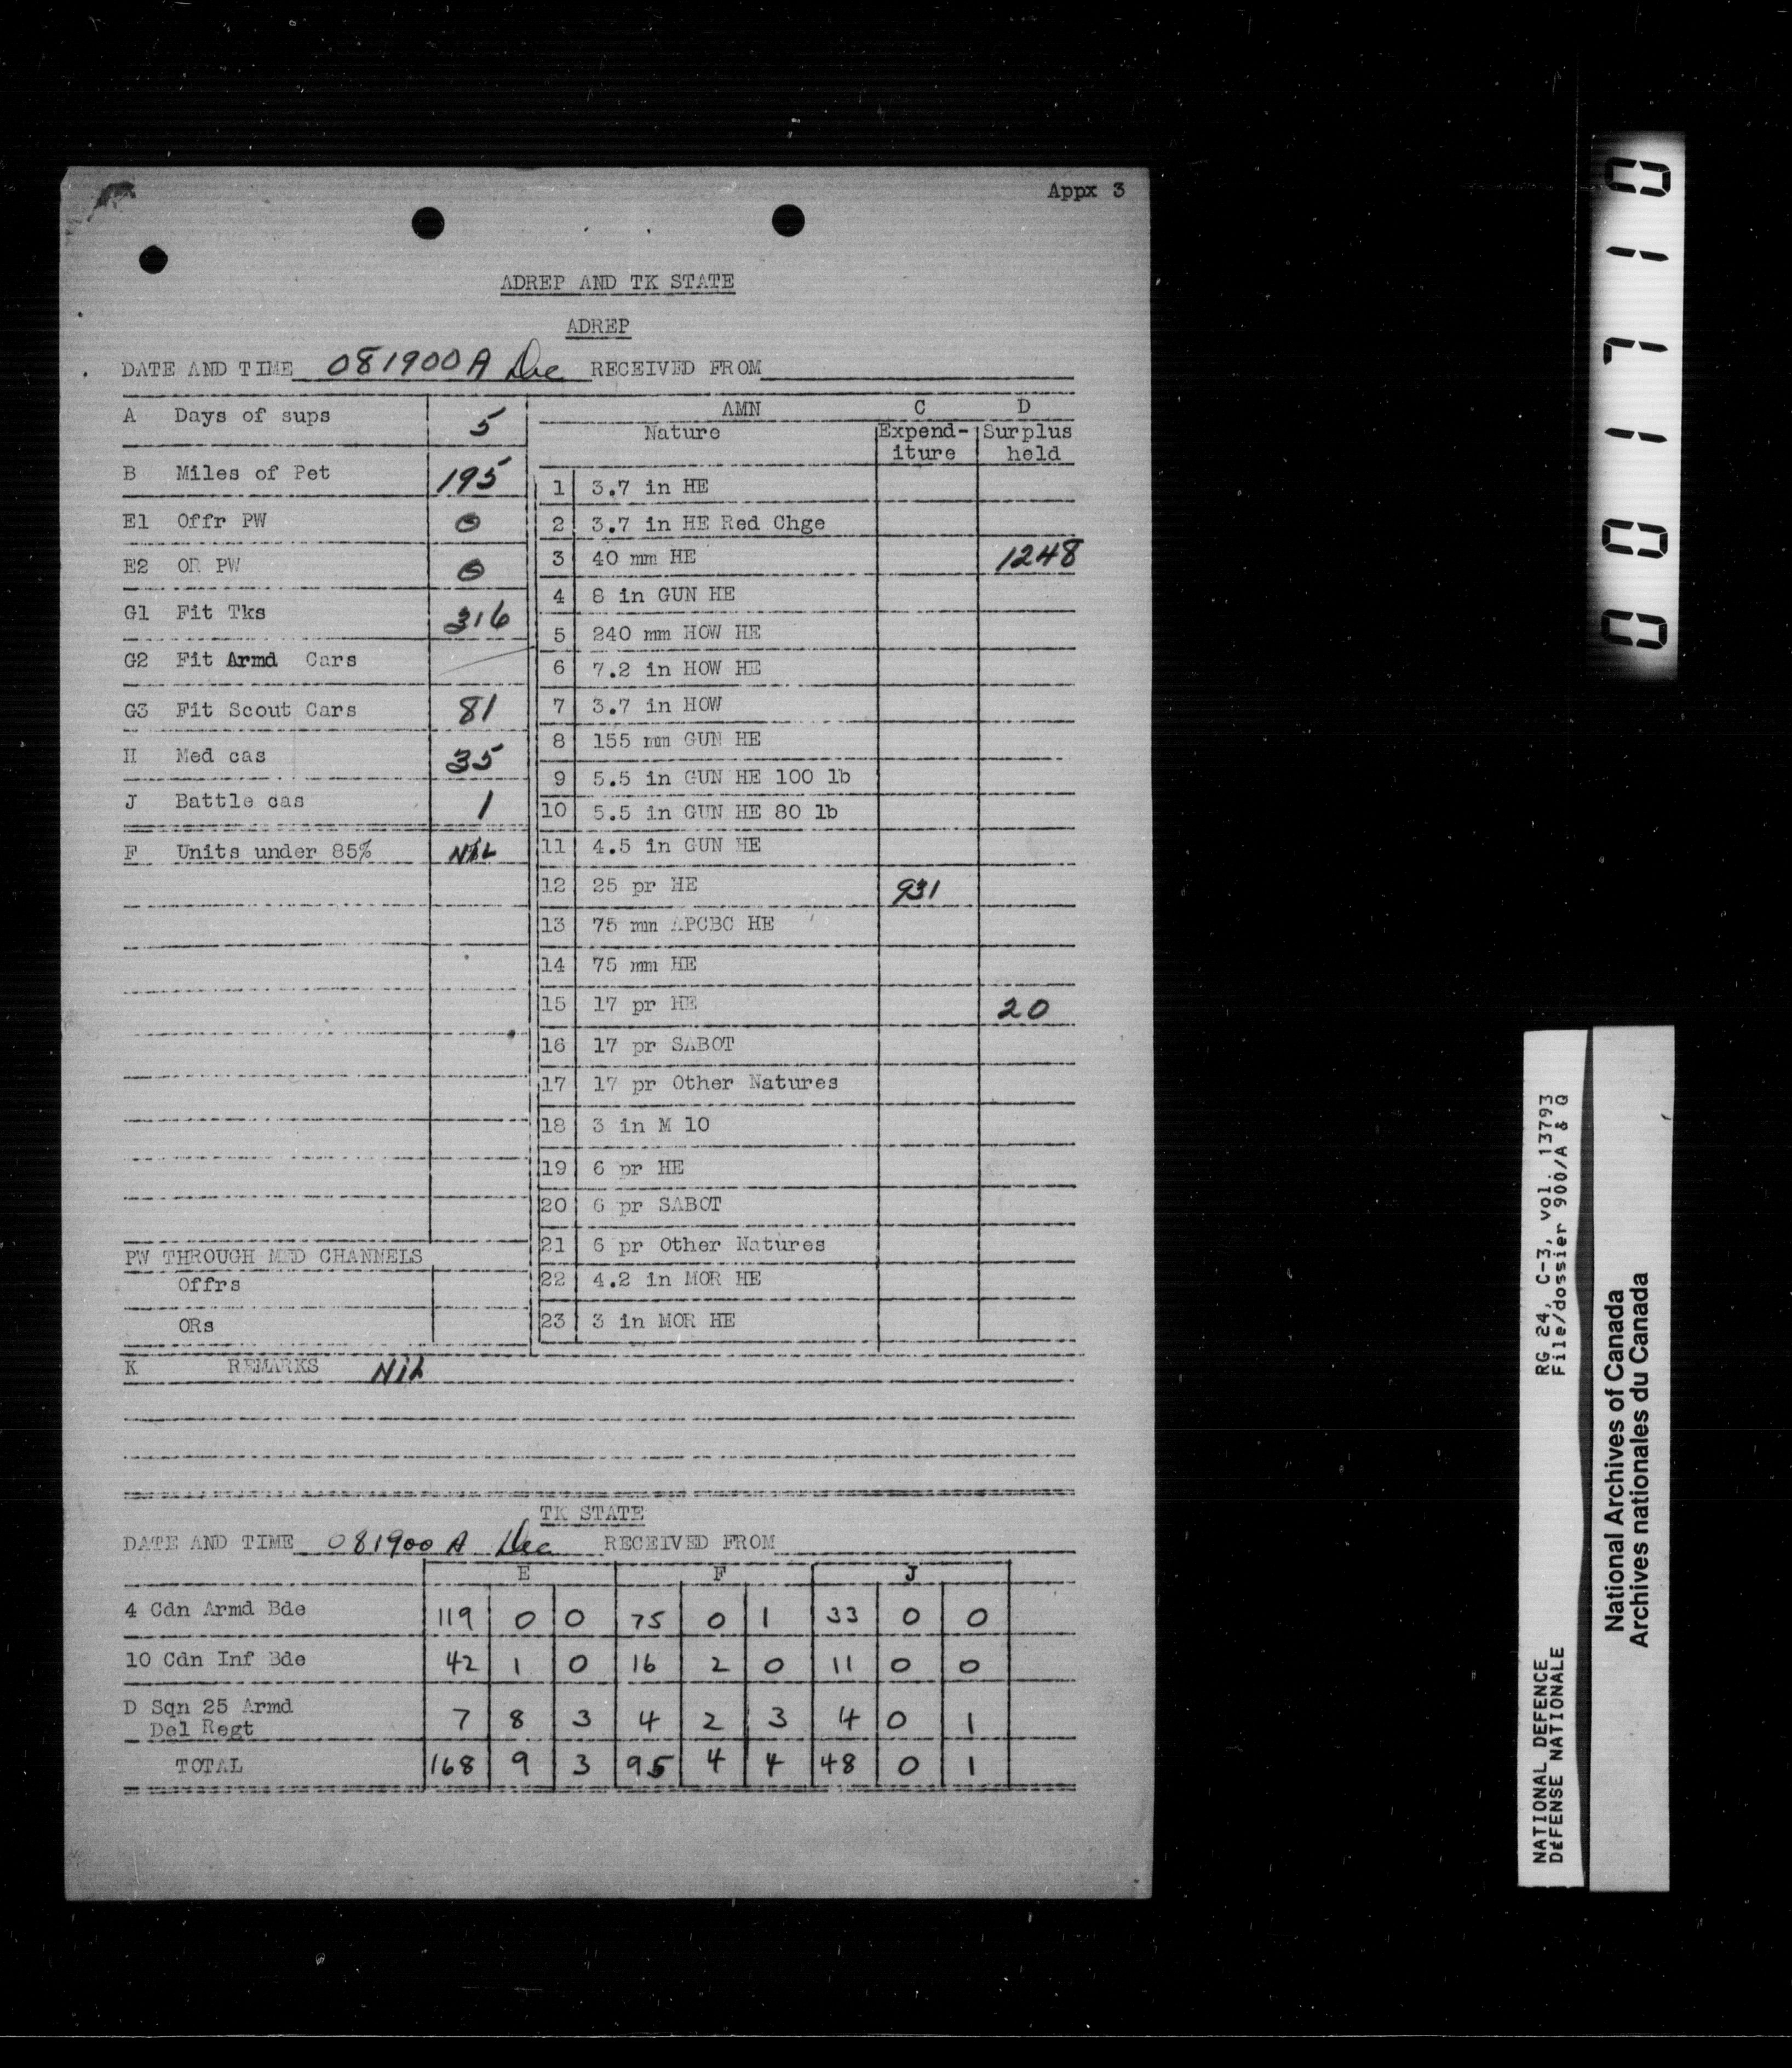 Appx 3
ADREP AND TK STATE
ADREP
DATE AND TIME 081900A Dec RECEIVED FROM
A Days of sups 5
B Miles of Pet 195
E1 Offr PW 0
E2 OR PW 0
G1 Fit Tks 316
G2 Fit Armd Cars
G3 Fit Scout Cars 81
H Med cas 35
J Battle cas 1
F Units under 85% NIL
PW THROUGH MED CHANNELS
Offrs
ORs
AMN C D
Nature Expend- Surplus
iture held
1 3.7 in HE
2 3.7 in HE Red Chge
3 40 mm HE 1248
4 8 in GUN HE
5 240 mm HOW HE
6 7.2 in HOW HE
7 3.7 in HOW
8 155 mm GUN HE
9 5.5 in GUN HE 100 lb
10 5.5 in GUN HE 80 lb
11 4.5 in GUN HE
12 25 pr HE 931
13 75 mm APCBC HE
14 75 mm HE
15 17 pr HE 20
16 17 pr SABOT
17 17 pr Other Natures
18 3 in M 10
19 6 pr HE
20 6 pr SABOT
21 6 pr Other Natures
22 4.2 in MOR HE
23 3 in MOR HE
K REMARKS NIL
TK STATE
DATE AND TIME 081900 A Dec RECEIVED FROM
E F J
4 Cdn Armd Bde 119 0 0 75 0 1 33 0 0
10 Cdn Inf Bde 42 1 0 16 2 0 11 0 0
D Sqn 25 Armd
Del Regt 7 8 3 4 2 3 4 0 1
TOTAL 168 9 3 95 4 4 48 0 1
001710
NATIONAL DEFENCE RG 24, C-3, vol. 13793
DÉFENSE NATIONALE File/dossier 900/A & Q
National Archives of Canada
Archives nationales du Canada